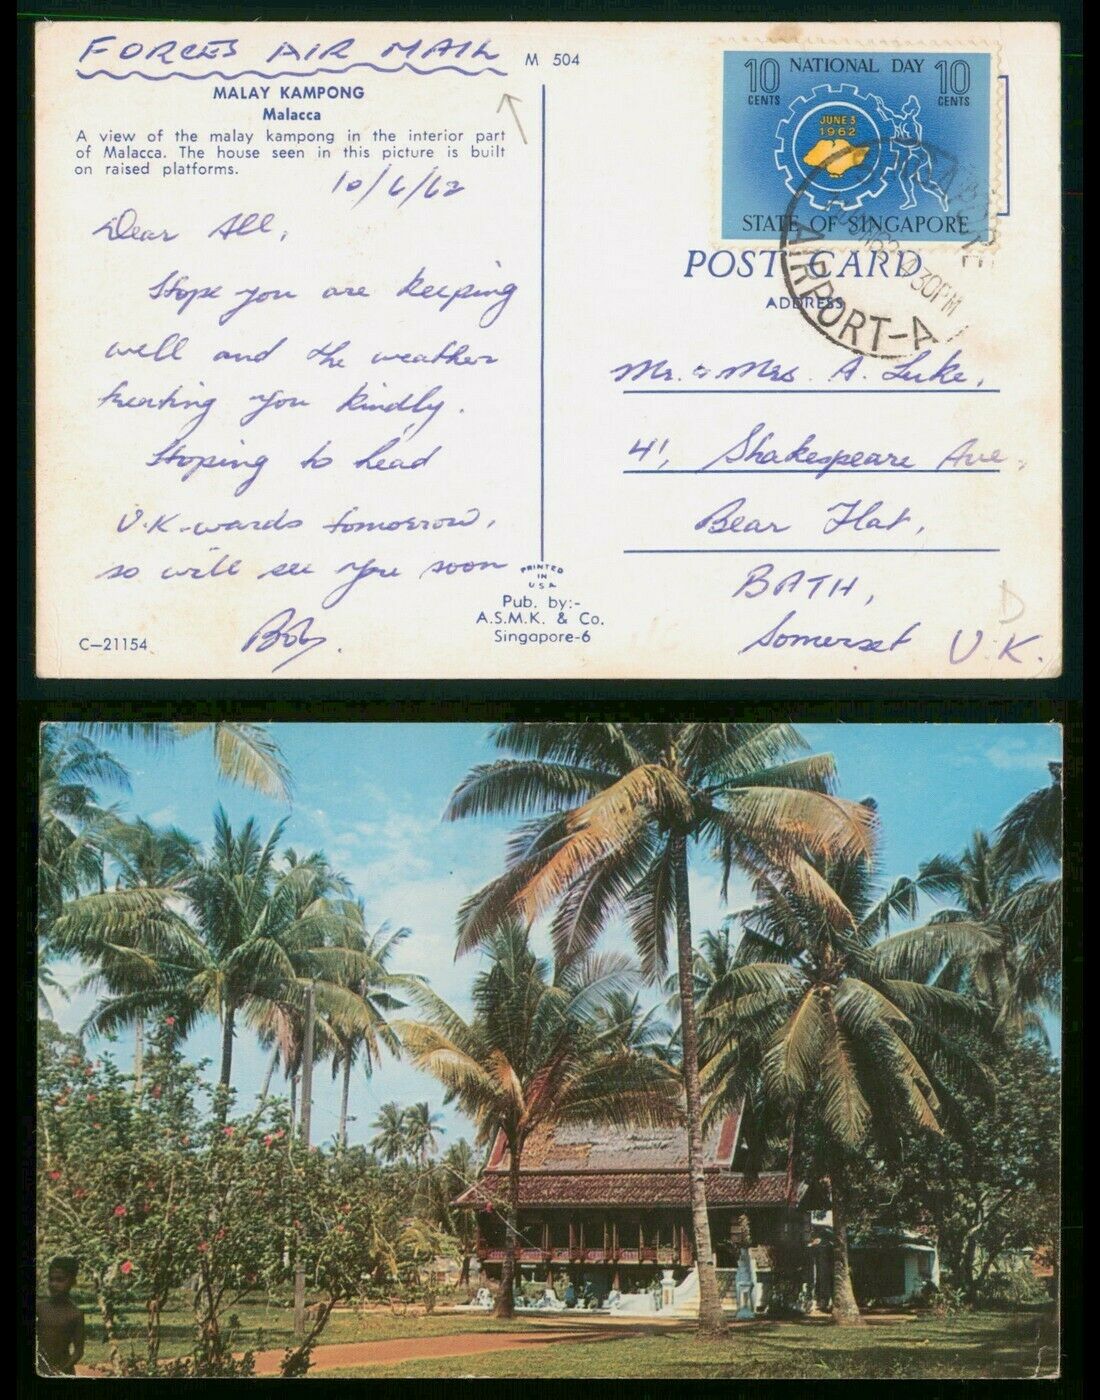 FORCES AIR MAIL
M 504
MALAY KAMPONG
Malacca
A view of the malay kampong in the interior part
of Malacca. The house seen in this picture is built
on raised platforms.
10/6/62
Dear All,
Hope you are keeping
well and the weather
treating you kindly.
Hoping to head
U.K-wards tomorrow,
so will see you soon
Bob.
C-21154
PRINTED
IN
U.S.A.
Pub. by:-
A.S.M.K. & Co.
Singapore-6
10 CENTS
NATIONAL DAY
10 CENTS
JUNE 3
1962
STATE OF SINGAPORE
AIRPORT-A
30PM
POST CARD
ADDRESS
Mr. & Mrs. A. Luke,
41, Shakespeare Ave,
Bear Flat,
BATH,
Somerset U.K.
D